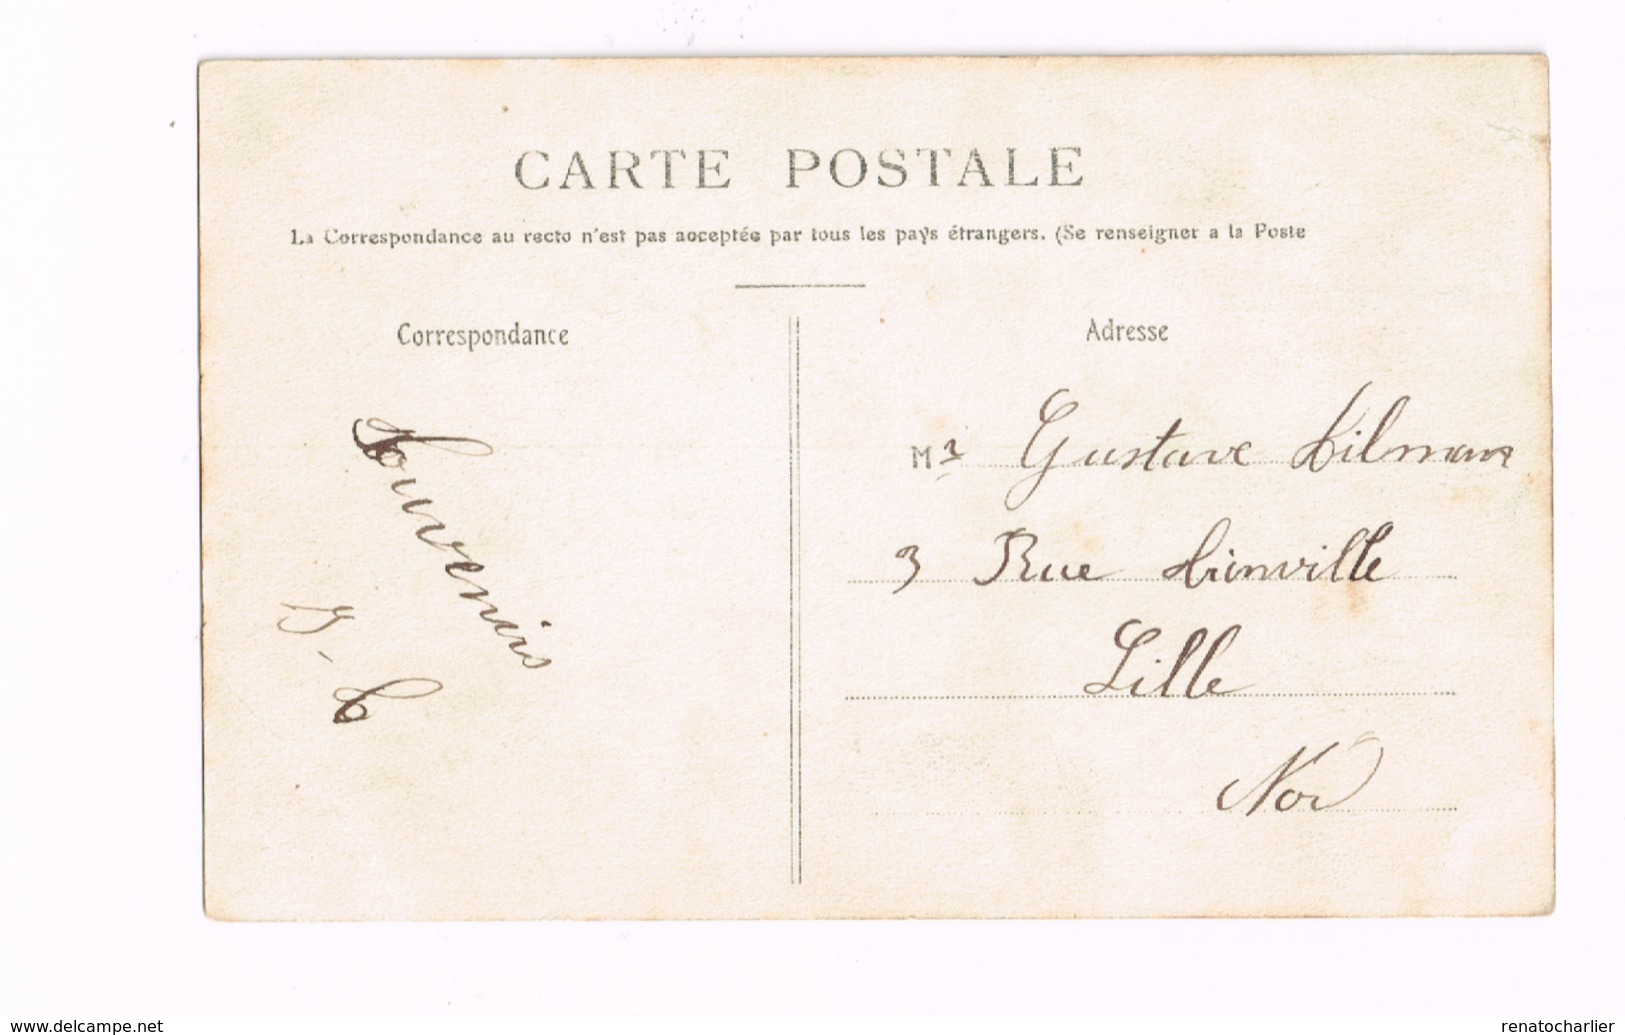 CARTE POSTALE
La Correspondance au recto n'est pas acceptée par tous les pays étrangers. (Se renseigner a la Poste
Correspondance
Souvenirs
G. C
Adresse
Mr Gustave Dilmans
3 Rue Linville
Lille
Nord
www.delcampe.net
renatocharlier